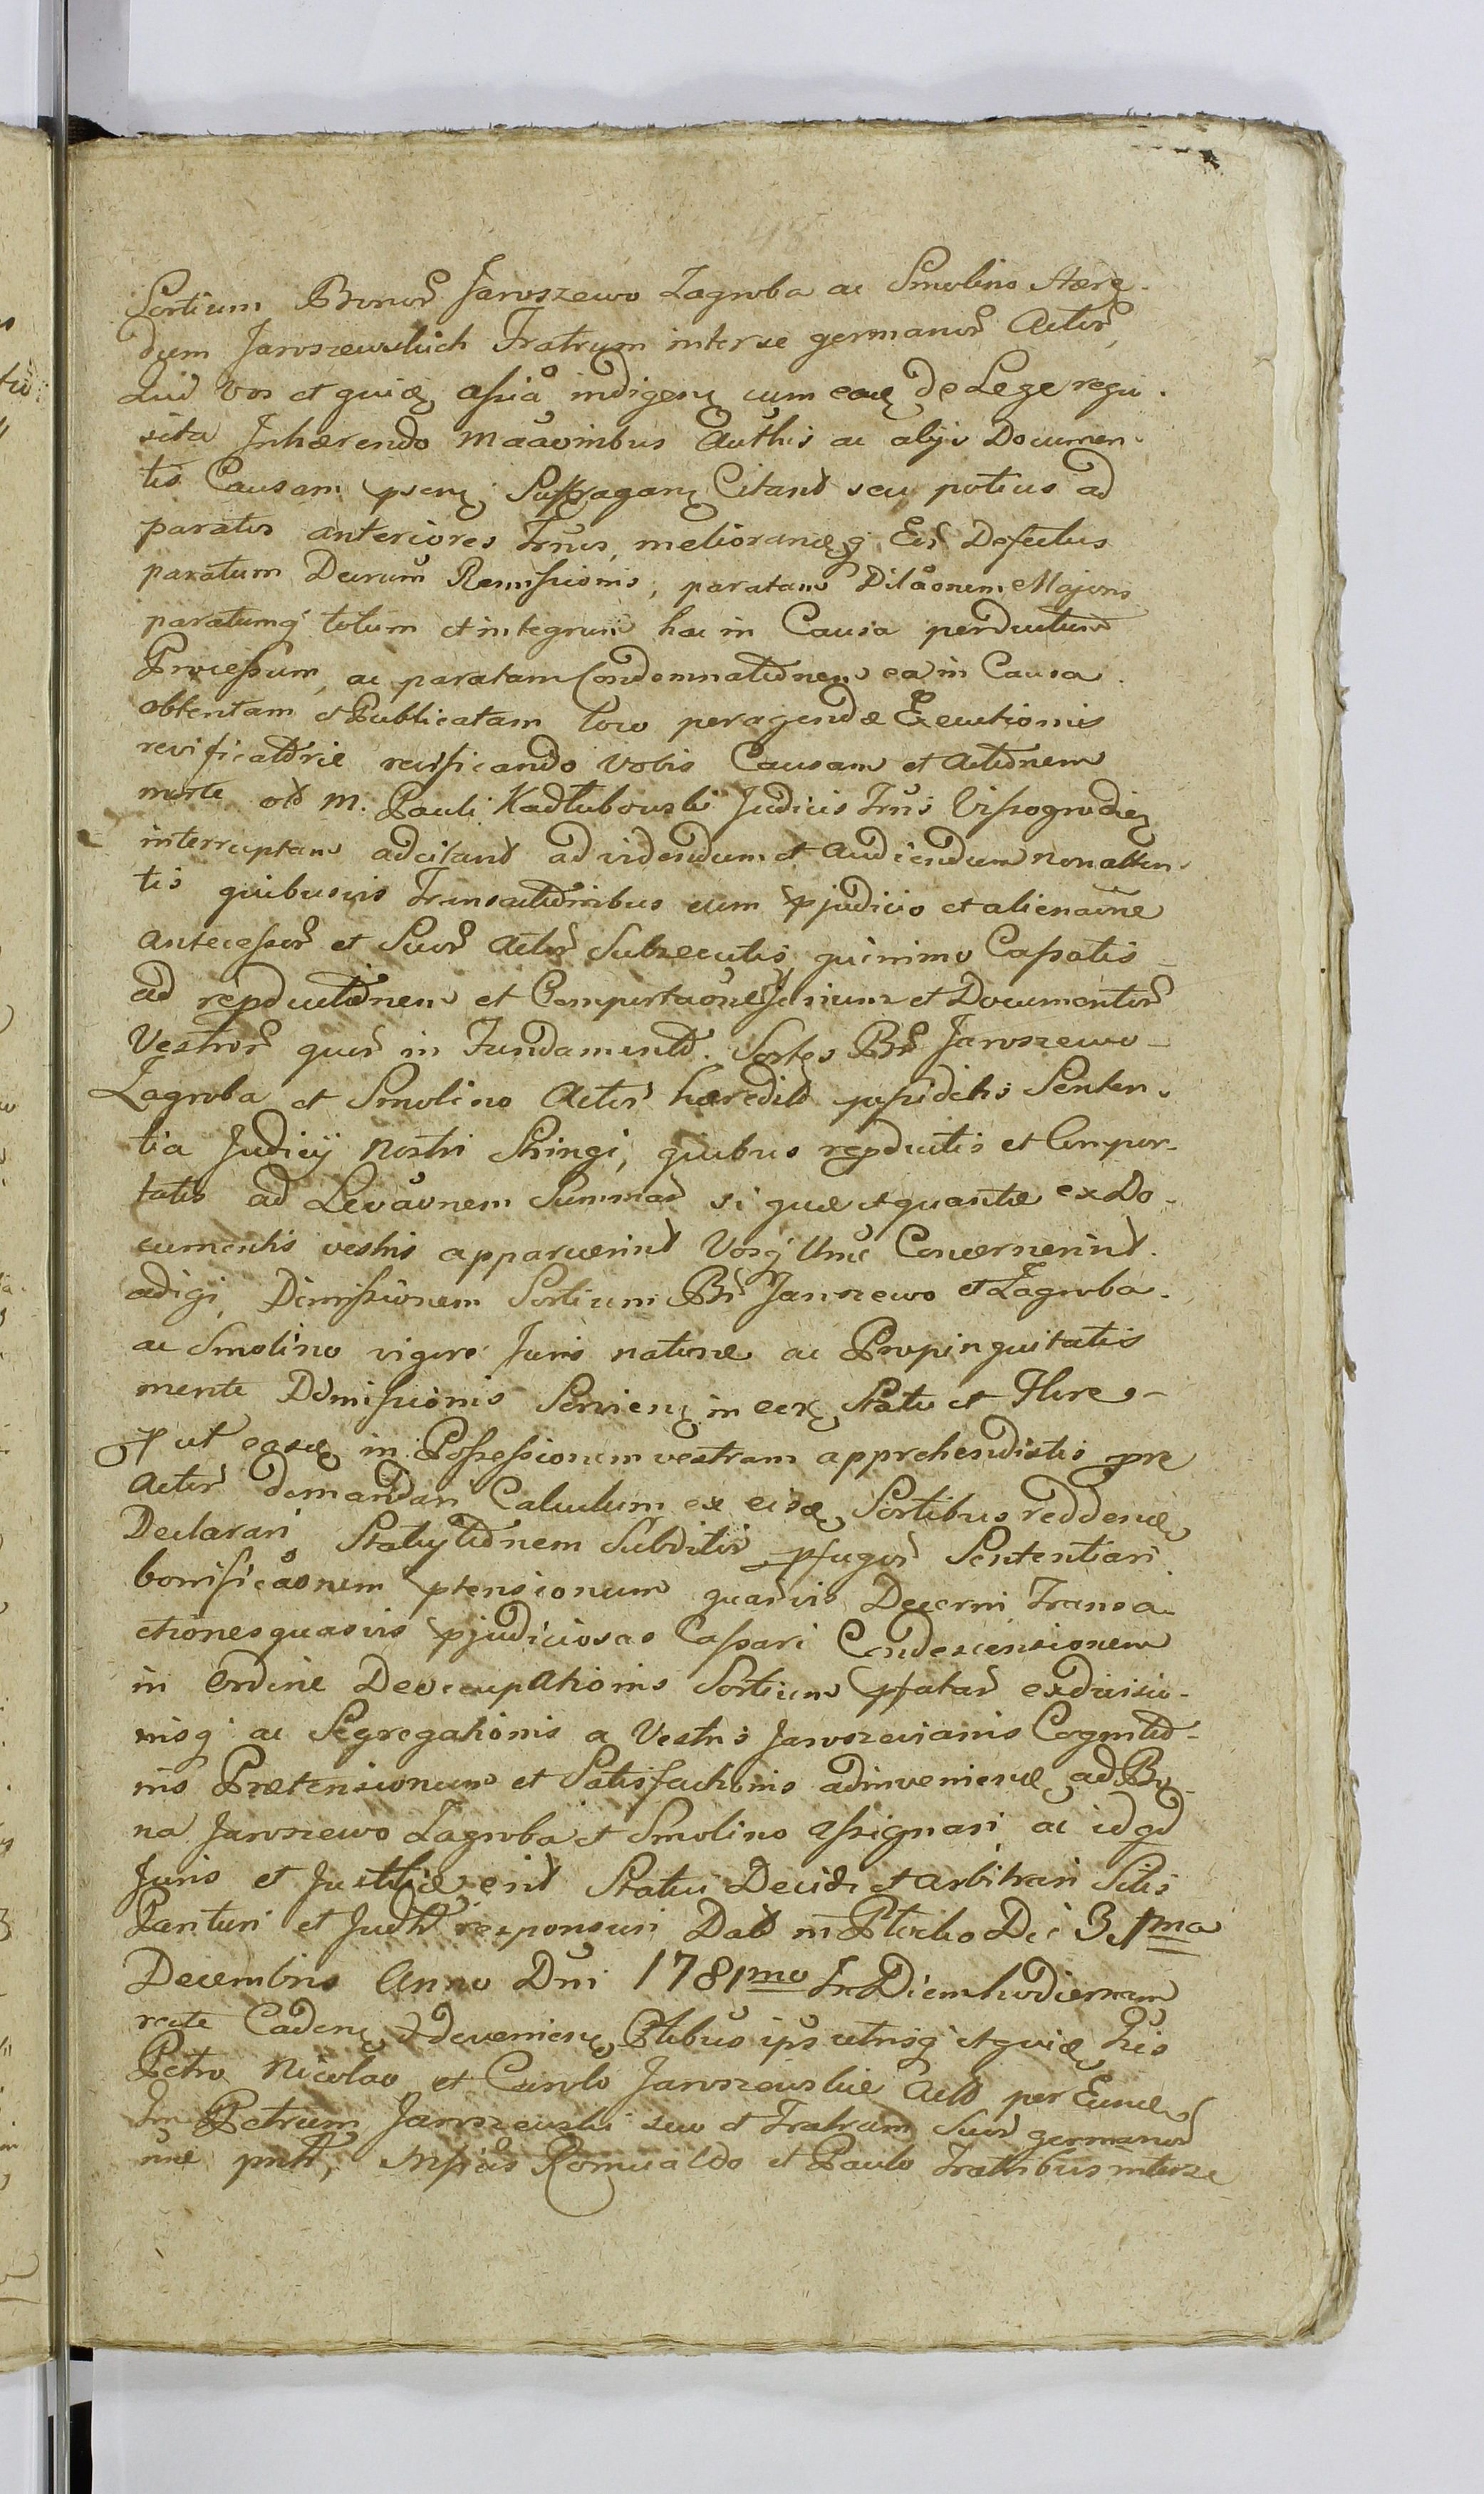 Sortium Bonor Jaroszewo Zagroba ac Smolino Hære-
dum Jaroszewskich Fratrum inter se germanor Actor,
Qui vos et quiæ assia indigen cum eaæ de Lege requi-
sita Inhærendo Authis ac alijs Documen-
tis Causam psen Suffragan Citand seu potius ad
paratos anteriores Trnos, melioranæ Eor Defectus
paratum Decrum Remissionis, paratam Dilaonem Majoris
paratumq totum et integrum hac in Causa perductum
Processum, ac paratam Condemnationem ea in Causa
obtentam et Publicatam loco peragendæ Executionis
 vobis Causam et Actionem
morte old M. Pauli Kadłubowski Judicis Trris Vissogrodien
interruptam adcitand ad videndum et audiendum non atten-
tis quibusvis Transactionibus cum pjudicio et alienaone
Antecessor et Suor Actor Subsecutis quinimo Cassatis
ad repductionem et Comportaone Jurium et Documentor
Vestror quor in Fundamento Sortes Br Jaroszewo
Zagroba et Smolino Actor hæredit possidetis Senten-
tia Judicij nostri Stringi, quibus repductis et Compor-
tatis ad Levaonem Summar si quæ et quantæ ex Do-
cumentis vestris apparuerint Vosq Concernerint
adigi, Dimissionem Sortium Br Jaroszewo et Zagroba
ac Smolino vigore Juris naturæ ac Propinquitatis
mente Dimissionis Servien in eor Statu et Flore
put easdæ in Possessionem vestram apprehendistis pre
Actor demandari Calculum ex eisdæ Sortibus reddenæ
Declarari, Statuitionem Subditor pfugor Sententiari
bonificaonem ptensionum quarvis Decerni Transa-
ctiones quasvis pjudiciosas Cassari Condescensionem
in ordine Deoccupationis Sortium pfatar exdivisio-
nisq ac Segregationis a Vestris Jaroszevianis Cognitio-
nis Prætensionum et Satisfactionis adinveniendæ ad Bo-
na Jaroszewo Zagroba et Smolino assignari ac id qd
Juris et Justitiæ erit Statui Decidi et arbitrari Sitis
Parituri et Judtr responsuri Dat in Plocko Die 31ma
Decembris Anno Dni 1781mo In Diem hodiernam
recte Caden et devenien Ptibus ips utrisq et quiæ his
Petro Nicolao et Carolo Jaroszewskie Actb per Eunæ
Petrum Jaroszewski suo et Fratrum Suor germanor
nne pntt, Inspeis Romualdo et Paulo Fratribus inter se